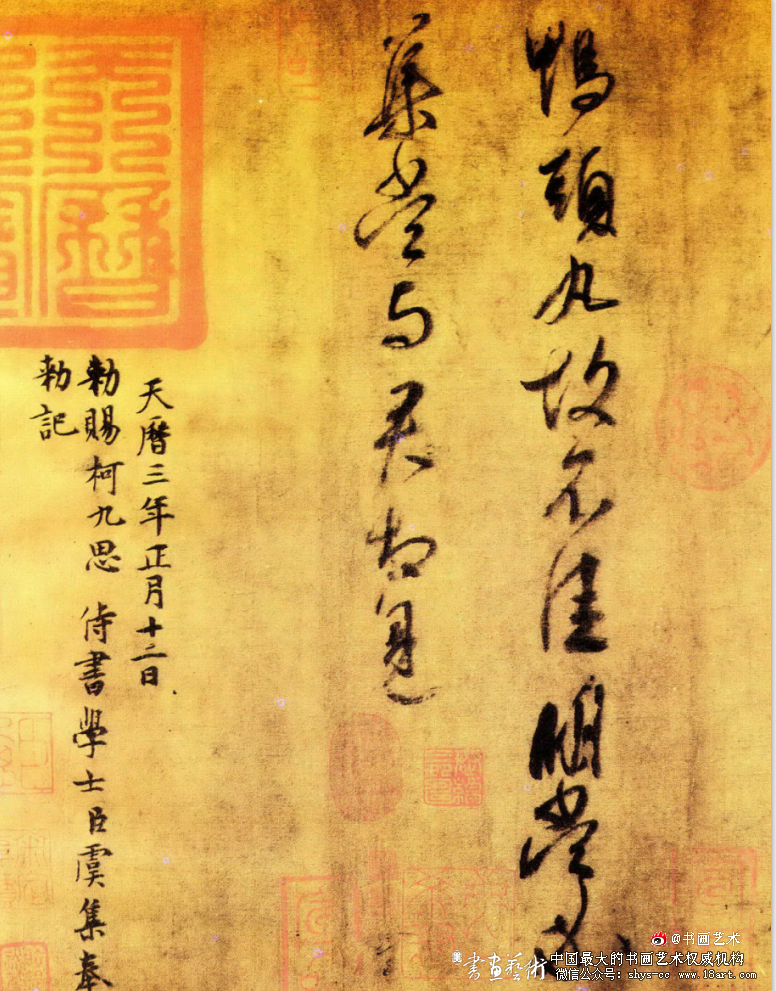 鴨頭丸故不佳明當必
集當與君相見
天曆三年正月十二日
勅賜柯九思 侍書學士臣虞集奉
勅記
天曆
@书画艺术
書畫藝術
中国最大的书画艺术权威机构
微信公众号：shys-cc www.18art.com